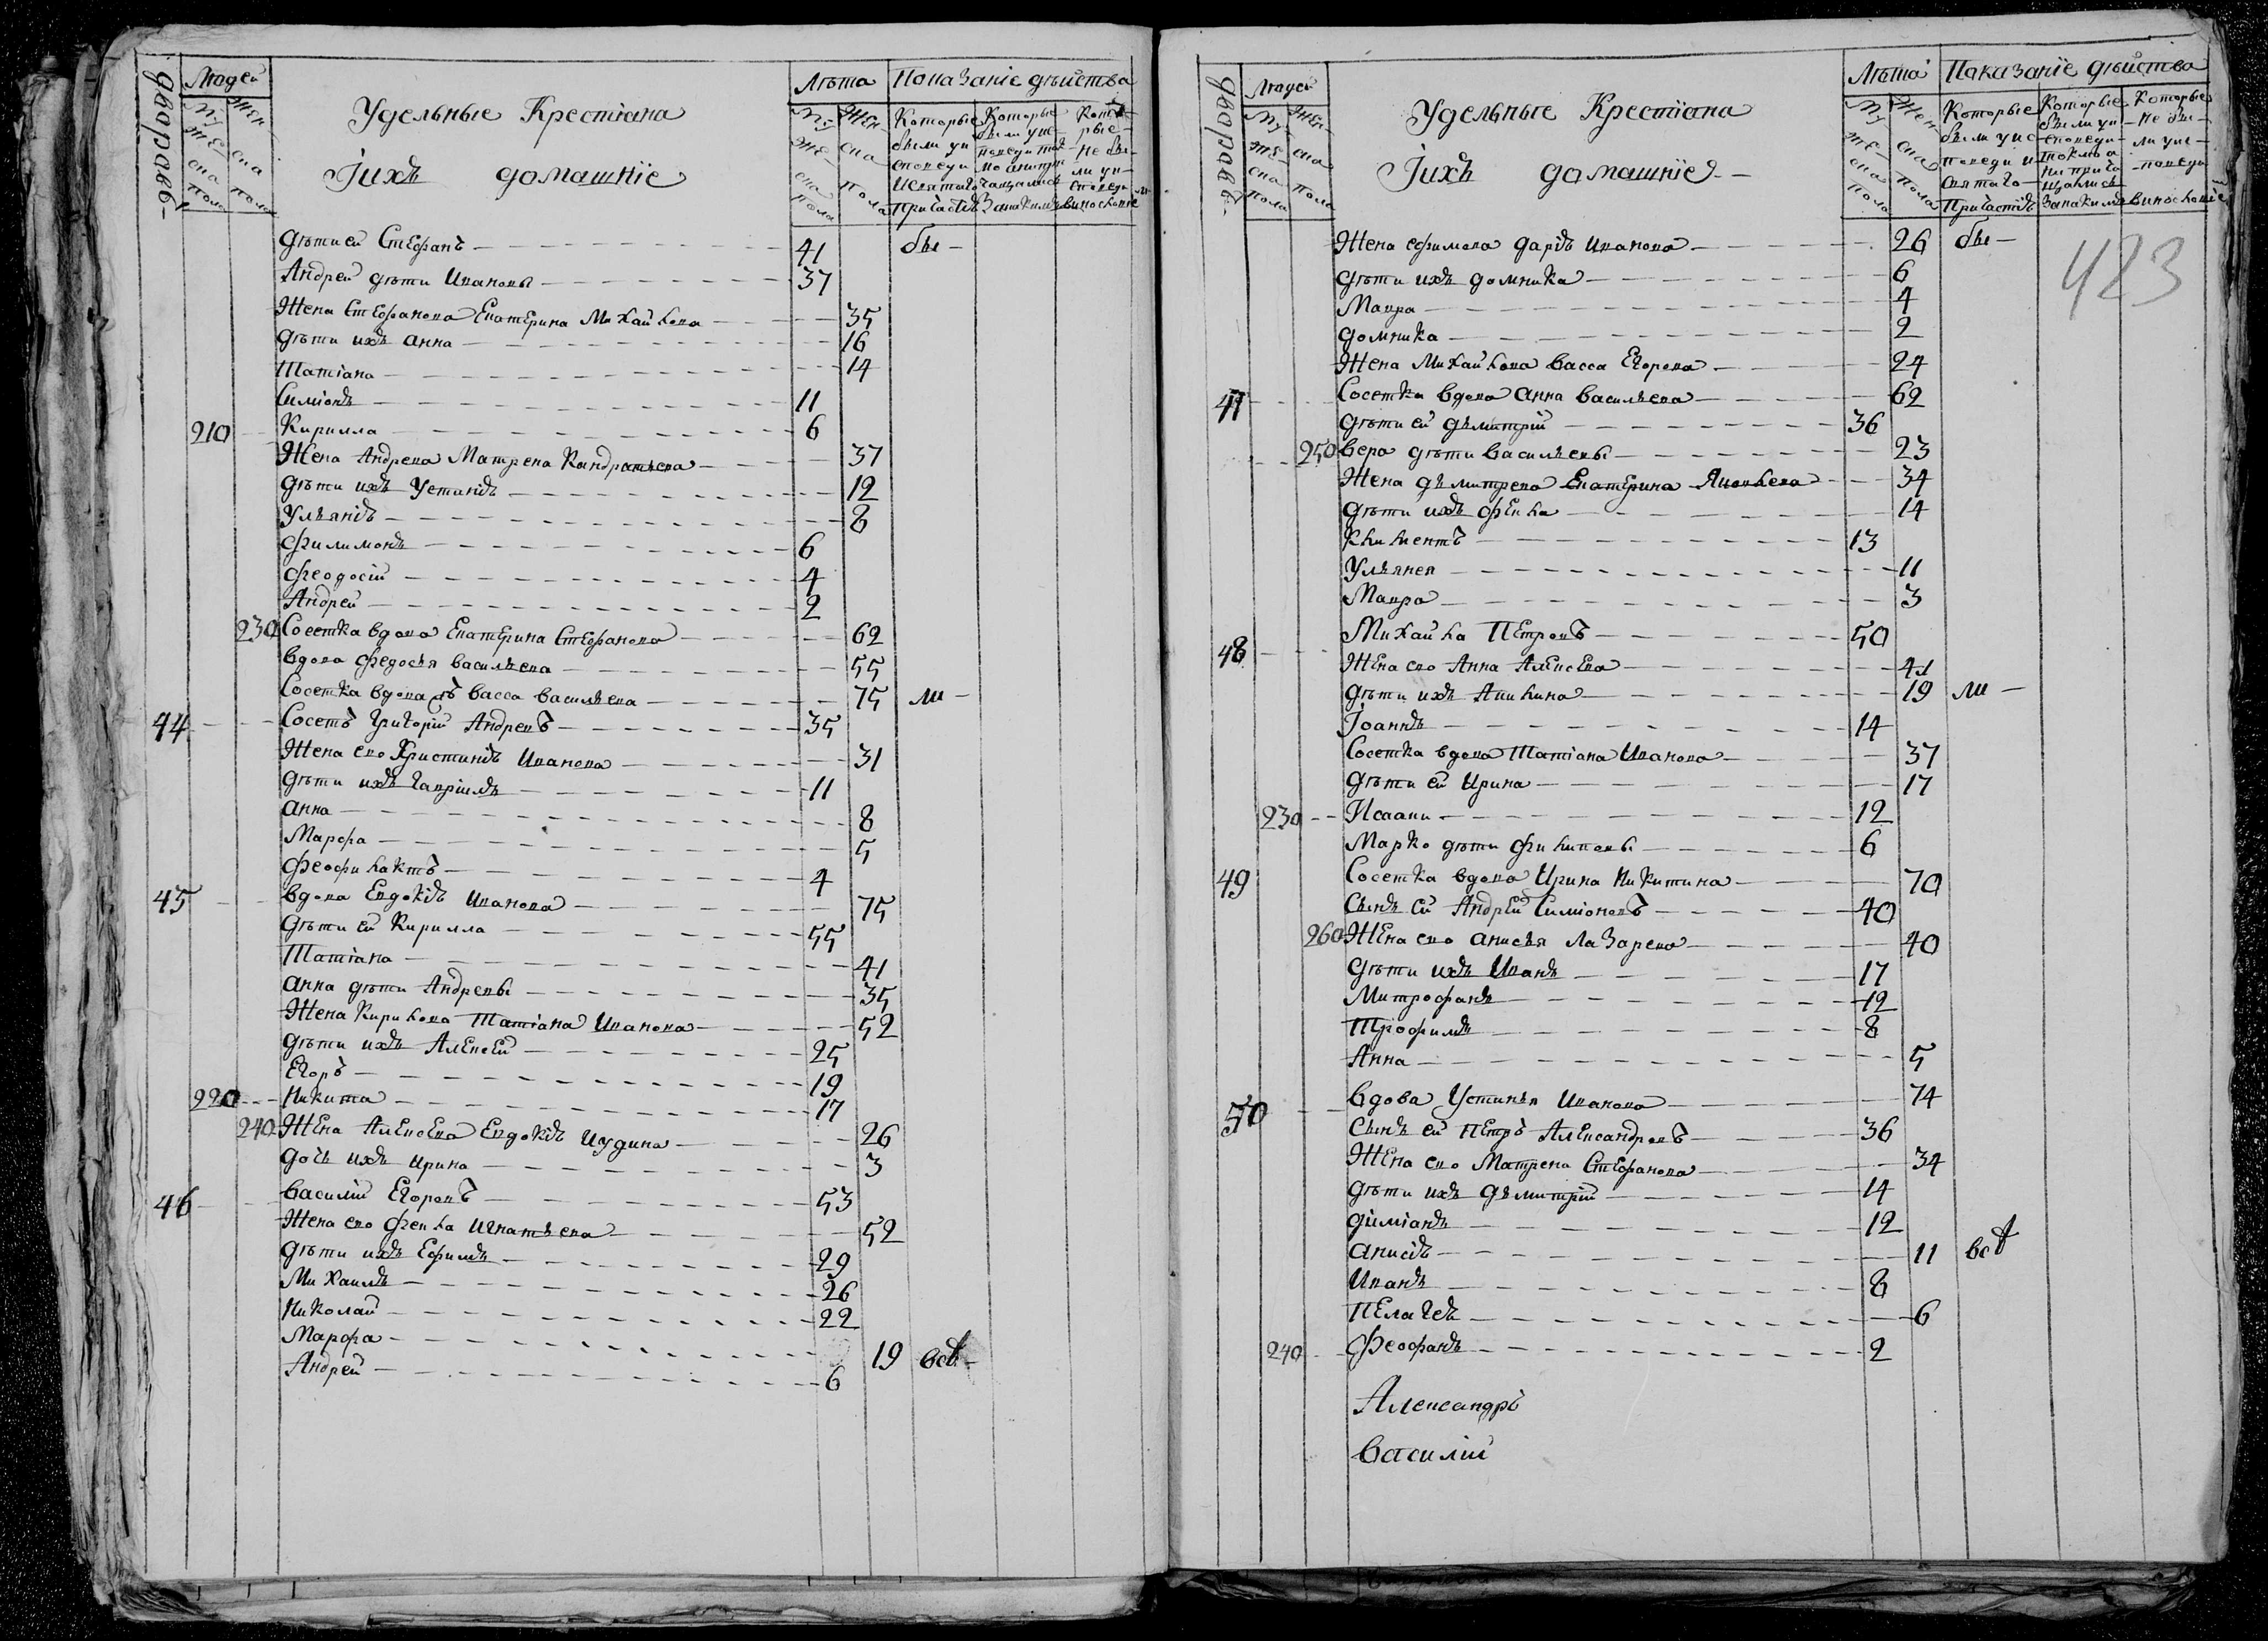 дворовъ
Людей
Муженска пола
Женска пола
Удельные Крестіана
Іихъ домашніе
Лѣта
Муженска пола
Женска пола
Показаніе дѣйства
Которые были у исповеди и святаго Причастія
Которые были у исповеди
Которые не были у исповеди
дѣти ей Стефанъ 41 бы
Андрей дѣти Ивановы 37
Жена Стефанова Екатерина Михайлова 35
дѣти ихъ анна 16
Татіана 14
Симіонъ 11
210 Кирилла 6
Жена Андрева Матрена Кандратьева 37
дѣти ихъ Устинія 12
Ульянія 8
Филимонъ 6
Феодосій 4
Андрей 2
230 Соседка вдова Екатерина Стефанова 62
вдова федосья васильева 55
Соседка вдова васса васильева 75 ли
44 Соседъ Григорій Андревъ 35
Жена его Христинія Иванова 31
дѣти ихъ Гавріилъ 11
анна 8
Марфа 5
Феофилактъ 4
45 вдова Евдокія Иванова 75
дѣти ей Кирилла 55
Татіана 41
анна дѣти Андревы 35
Жена Кирилова Татіана Иванова 52
дѣти ихъ Алексей 25
Егоръ 19
220 Никита 17
240 Жена Алексева Евдокія Иудина 26
дочь ихъ ирина 3
46 Василій Егоровъ 53
Жена его Фекла Игнатьева 52
дѣти ихъ Ефимъ 29
Михаилъ 26
Николай 22
Марфа 19 всѣ
Андрей 6
дворовъ
Людей
Муженска пола
Женска пола
Удельные Крестіана
Іихъ домашніе
Лѣта
Муженска пола
Женска пола
Показаніе дѣйства
Которые были у исповеди и святаго Причастія
Которые были у исповеди
Которые не были у исповеди
423
Жена ефимова дарія Иванова 26 бы
дѣти ихъ домника 6
Мавра 4
домника 2
Жена Михайлова васса Егорова 24
47 Соседка вдова анна васильева 62
дѣти ей дьмитрій 36
250 вера дѣти васильевы 23
Жена дьмитрева Екатерина Яковлева 34
дѣти ихъ фекла 14
Климентъ 13
Ульянея 11
Мавра 3
48 Михайла Петровъ 50
Жена его Анна Алексева 41
дѣти ихъ Акилина 19 ли
Іоаннъ 14
Соседка вдова Татіана Иванова 37
дѣти ей Ирина 17
230 Исааки 12
Марко дѣти филиповы 6
49 Соседка вдова Ирина Никитина 70
Сынъ ей Андрей Симіоновъ 40
260 Жена его анисья Лазарева 40
дѣти ихъ Иванъ 17
Митрофанъ 12
Трофимъ 8
Анна 5
50 вдова Устинья Иванова 74
Сынъ ей Петръ Александровъ 36
Жена его Матрена Стефанова 34
дѣти ихъ дьмитрій 14
диміанъ 12
анисія 11 всѣ
Иванъ 8
Пелагея 6
240 Феофанъ 2
Александръ
Василій